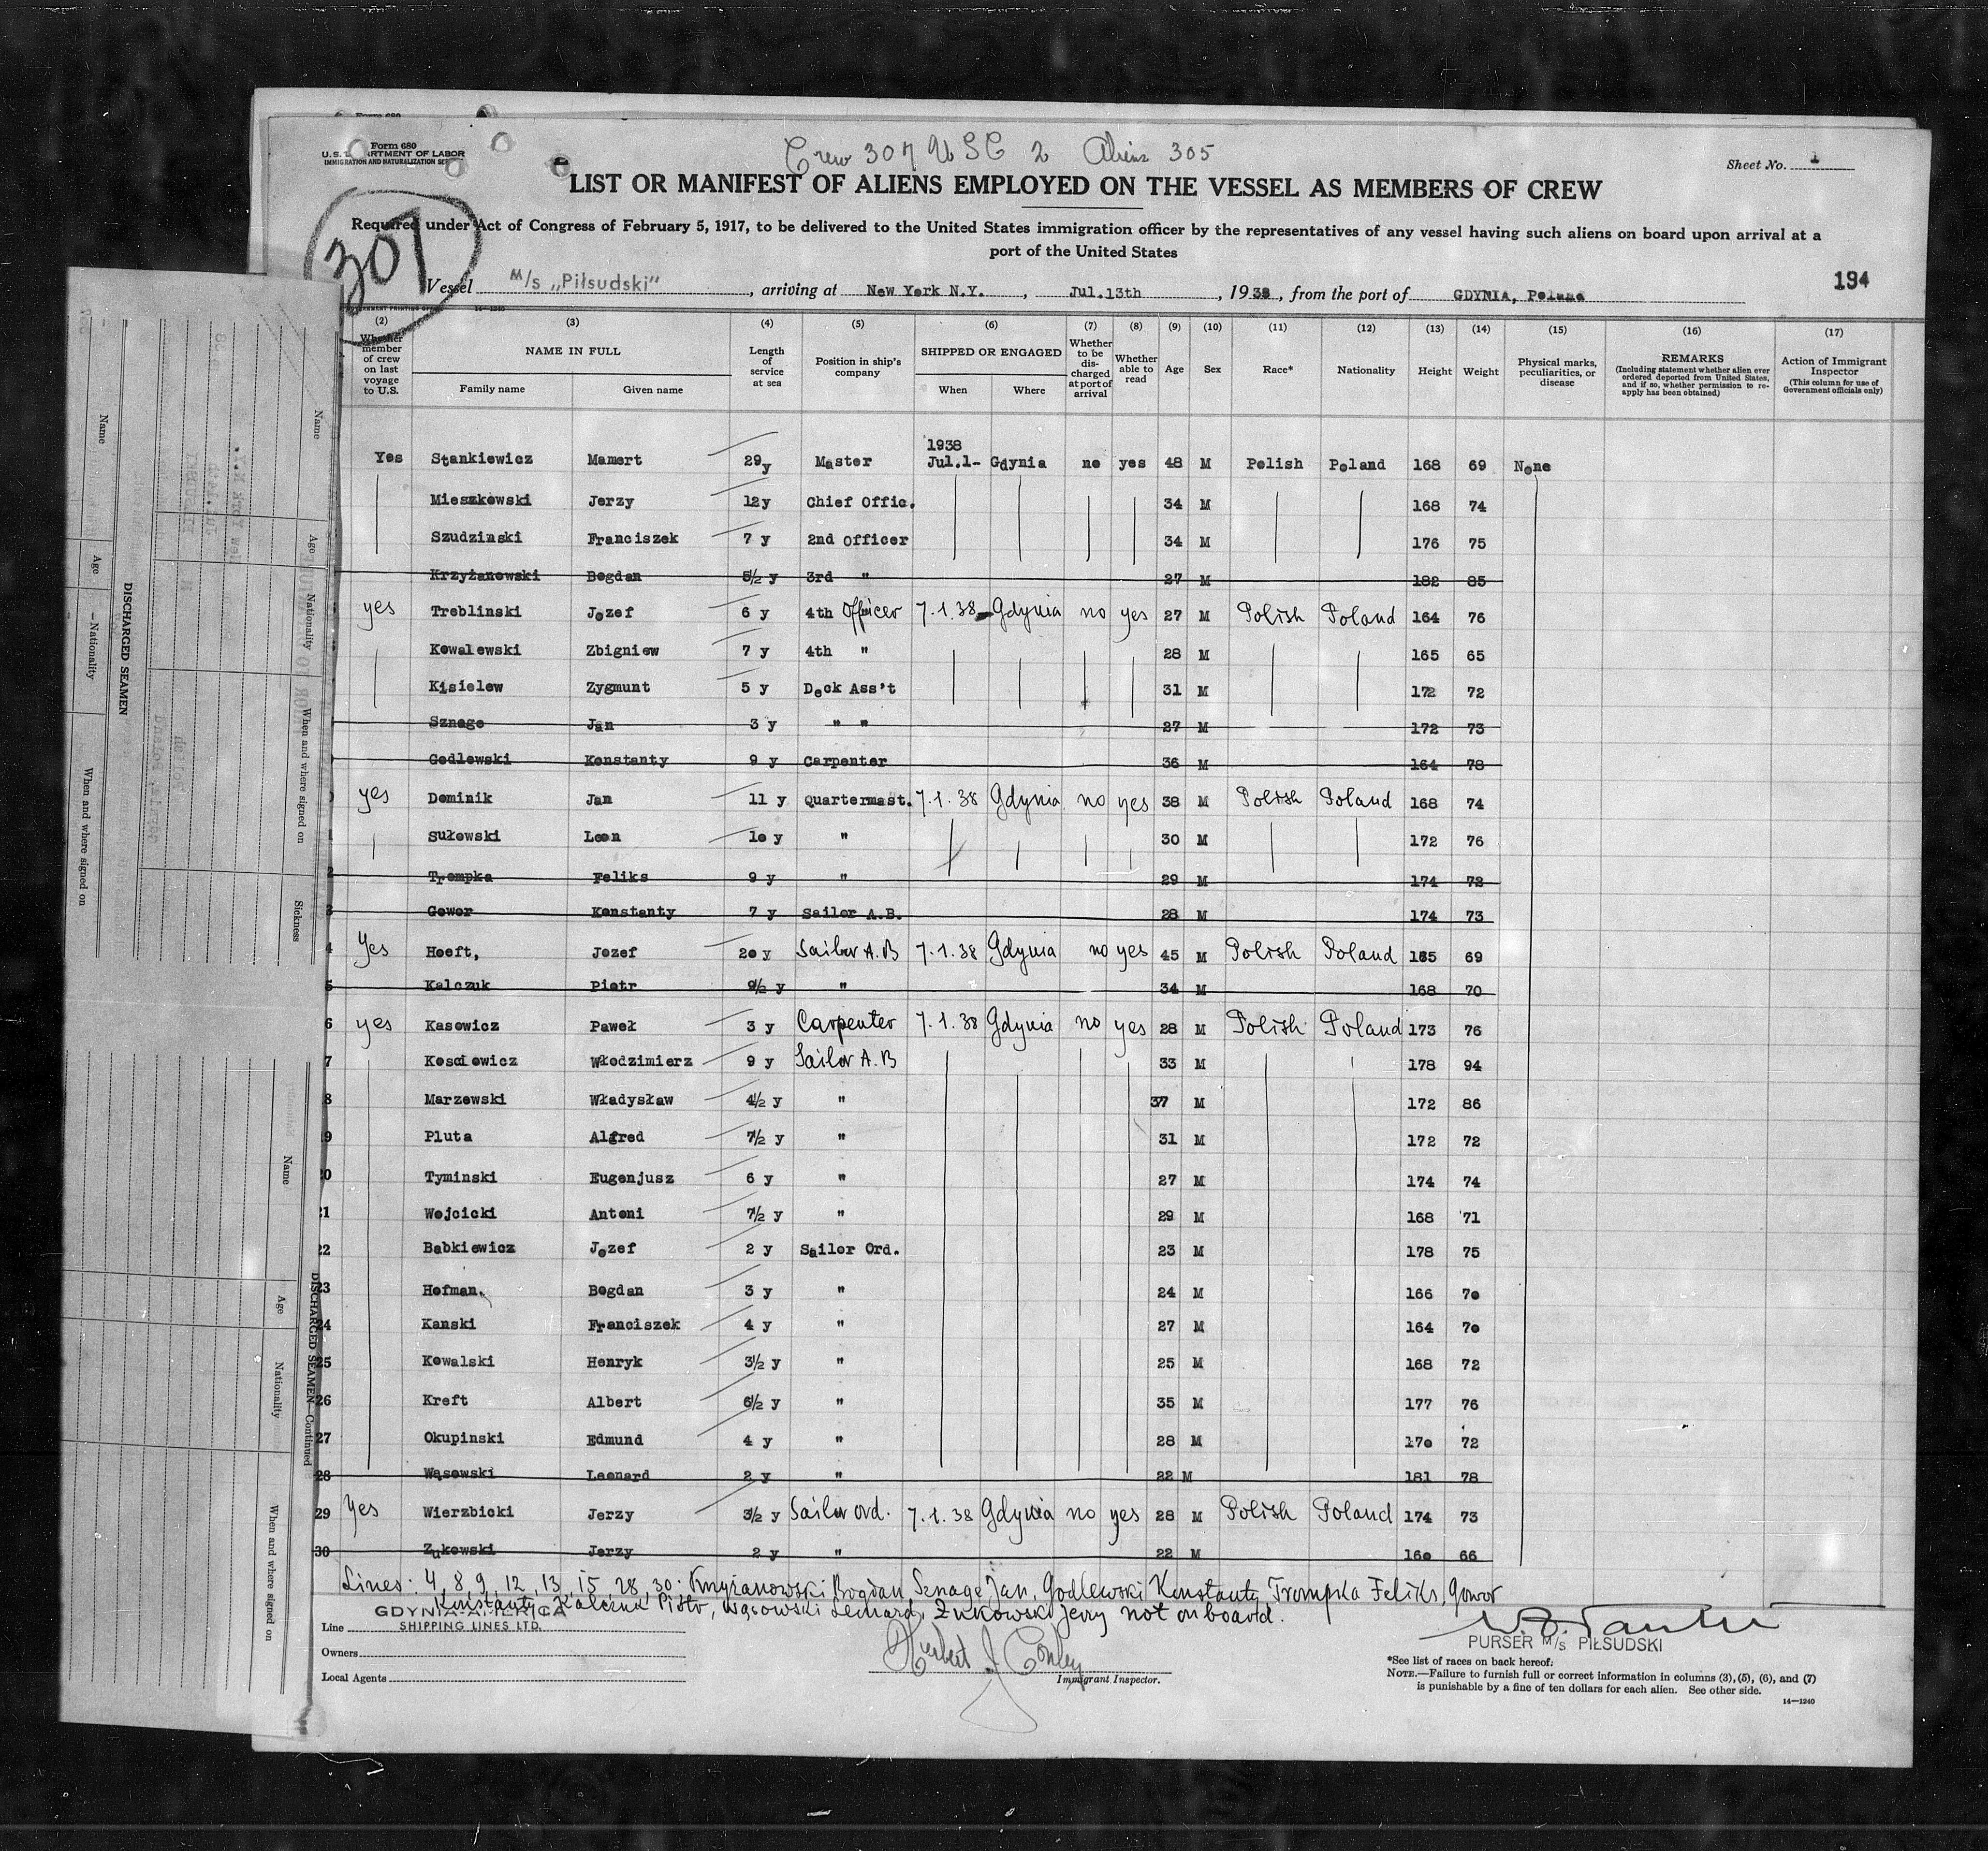 Form 680
U.S. DEPARTMENT OF LABOR
IMMIGRATION AND NATURALIZATION
Crew 307 USC 2 Aliens 305
Sheet No. 1
LIST OR MANIFEST OF ALIENS EMPLOYED ON THE VESSEL AS MEMBERS OF CREW
307
Required under Act of Congress of February 5, 1917, to be delivered to the United States immigration officer by the representatives of any vessel having such aliens on board upon arrival at a
port of the United States
194
Vessel M/s „Piłsudski", arriving at New York N.Y., Jul.13th, 1938, from the port of GDYNIA, Poland
14—1240
(2) (3) (4) (5) (6) (7) (8) (9) (10) (11) (12) (13) (14) (15) (16) (17)
Whether member of crew on last voyage to U.S.
NAME IN FULL
Family name Given name
Length of service at sea
Position in ship's company
SHIPPED OR ENGAGED
When Where
Whether to be discharged at port of arrival
Whether able to read
Age
Sex
Race*
Nationality
Height
Weight
Physical marks, peculiarities, or disease
REMARKS
(Including statement whether alien ever ordered deported from United States, and if so, whether permission to reapply has been obtained)
Action of Immigrant Inspector
(This column for use of Government officials only)
1938
Yes Stankiewicz Mamert 29y Master Jul.1- Gdynia no yes 48 M Polish Poland 168 69 None
Mieszkowski Jerzy 12y Chief Offic. 34 M 168 74
Szudzinski Franciszek 7 y 2nd Officer 34 M 176 75
Krzyżanowski Bogdan 5½ y 3rd " 27 M 182 85
yes Treblinski Jozef 6 y 4th Officer 7.1.38 Gdynia no yes 27 M Polish Poland 164 76
Kowalewski Zbigniew 7 y 4th " 28 M 165 65
Kisielew Zygmunt 5 y Deck Ass't 31 M 172 72
Sznage Jan 3 y " " 27 M 172 73
Godlewski Konstanty 9 y Carpenter 36 M 164 78
yes Dominik Jan 11 y Quartermast. 7.1.38 Gdynia no yes 38 M Polish Poland 168 74
1 Sułowski Leon 10 y " 30 M 172 76
2 Trompka Feliks 9 y " 29 M 174 72
3 Gowor Konstanty 7 y Sailor A.B. 28 M 174 73
4 Yes Hoeft, Jozef 20 y Sailor A.B 7.1.38 Gdynia no yes 45 M Polish Poland 165 69
5 Kalczuk Piotr 9½ y " 34 M 168 70
6 yes Kasowicz Paweł 3 y Carpenter 7.1.38 Gdynia no yes 28 M Polish Poland 173 76
7 Kosciewicz Włodzimierz 9 y Sailor A.B 33 M 178 94
8 Marzewski Władysław 4½ y " 37 M 172 86
19 Pluta Alfred 7½ y " 31 M 172 72
20 Tyminski Eugenjusz 6 y " 27 M 174 74
21 Wojcicki Antoni 7½ y " 29 M 168 71
22 Babkiewicz Jozef 2 y Sailor Ord. 23 M 178 75
23 Hofman. Bogdan 3 y " 24 M 166 70
24 Kanski Franciszek 4 y " 27 M 164 70
25 Kowalski Henryk 3½ y " 25 M 168 72
26 Kreft Albert 6½ y " 35 M 177 76
27 Okupinski Edmund 4 y " 28 M 170 72
28 Wąsowski Leonard 2 y " 22 M 181 78
29 Yes Wierzbicki Jerzy 3½ y Sailor ord. 7.1.38 Gdynia no yes 28 M Polish Poland 174 73
30 Zukowski Jerzy 2 y " 22 M 160 66
Lines: 4, 8, 9, 12, 13, 15, 28, 30: Krzyżanowski Bogdan, Sznage Jan, Godlewski Konstanty, Trompka Feliks, Gowor
Konstanty, Kalczuk Piotr, Wąsowski Leonard, Żukowski Jerzy not on board.
Line GDYNIA-AMERICA
SHIPPING LINES LTD.
Owners
Local Agents
Herbert J. Conley
Immigrant Inspector.
PURSER M/s PIŁSUDSKI
*See list of races on back hereof.
NOTE.—Failure to furnish full or correct information in columns (3), (5), (6), and (7)
is punishable by a fine of ten dollars for each alien. See other side.
14—1240
DISCHARGED SEAMEN
Name
Age
Nationality
When and where signed on
Name
Age
Nationality
When and where signed on
Sickness
DISCHARGED SEAMEN—Continued
Name
Age
Nationality
When and where signed on